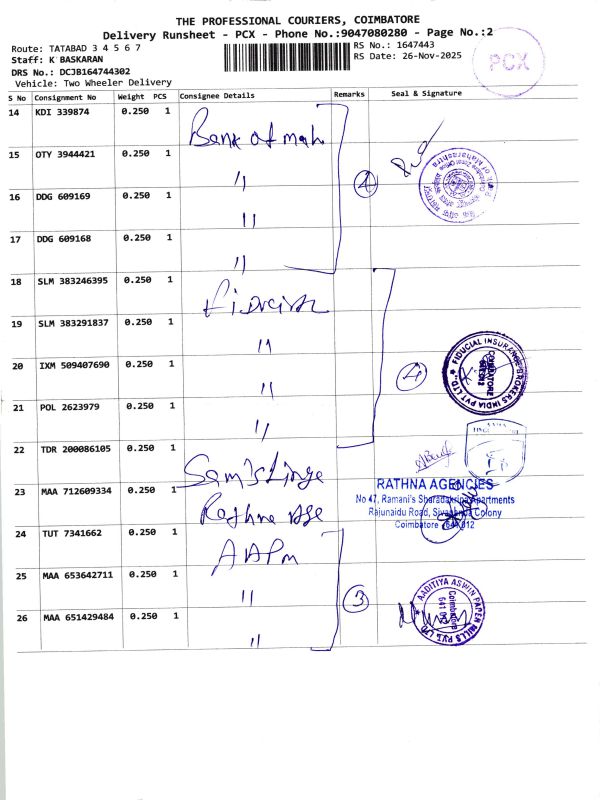 THE PROFESSIONAL COURIERS, COIMBATORE
Delivery Runsheet - PCX - Phone No.:9047080280 - Page No.:2
Route: TATABAD 3 4 5 6 7
Staff: K BASKARAN
DRS No.: DCJB164744302
Vehicle: Two Wheeler Delivery
RS No.: 1647443
RS Date: 26-Nov-2025
PCX
S No Consignment No Weight PCS Consignee Details Remarks Seal & Signature
14 KDI 339874 0.250 1 Bank of mah
15 OTY 3944421 0.250 1 "
16 DDG 609169 0.250 1 "
17 DDG 609168 0.250 1 "
4
18 SLM 383246395 0.250 1
19 SLM 383291837 0.250 1 "
20 IXM 509407690 0.250 1 "
21 POL 2623979 0.250 1 "
4
FIDUCIAL INSURANCE BROKERS INDIA PVT LTD.
COIMBATORE
641 012
22 TDR 200086105 0.250 1
23 MAA 712609334 0.250 1 Rathna
RATHNA AGENCIES
No 47, Ramani's Sharadakripa Apartments
Rajunaidu Road, Sivananda Colony
Coimbatore - 641 012
24 TUT 7341662 0.250 1 AAPM
25 MAA 653642711 0.250 1 "
26 MAA 651429484 0.250 1 "
3
AADITIYA ASWIN PAPER MILLS PVT. LTD.
Coimbatore
641 012